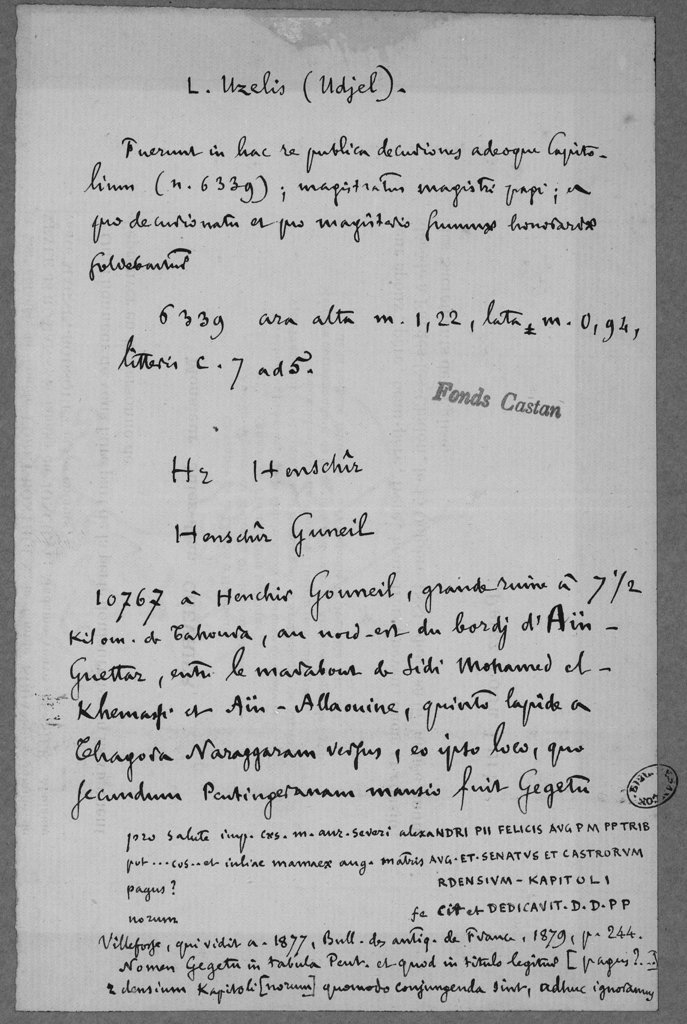 L. Uzelis (Udjel).
Fuerunt in hac re publica decuriones adeoque Capito-
lium (n. 6339); magistratus magistri pagi; et
pro decurionatu et pro magisterio summae honorariae
solvebantur
6339 ara alta m. 1,22, lata m. 0,94,
litteris c. 7 ad 5.
Fonds Castan
Hr Henschîr
Henschîr Guneil
10767 à Henchir Gouneil, grande ruine à 7 1/2
Kilom. de Tahoura, au nord-est du bordj d'Aïn-
Guettar, entre le marabout de Sidi Mohamed el-
Khemassi et Aïn-Allaouine, quinto lapide a
Thagora Naraggaram versus, eo ipso loco, quo
secundum Peutingeranam mansio fuit Gegetu
pro salute imp. caes. m. aur. severi alexANDRI PII FELICIS AVG P M PP TRIB
pot ... cos .. et iuliae mamaex aug. matris AVG. ET. SENATVS ET CASTRORVM
pagus? RDENSIVM - KAPITOLI
norum feCit et DEDICAVIT. D. D. P P
Villefosse, qui vidit a. 1877, Bull. des antiq. de France, 1879, p. 244.
Nomen Gegetu in tabula Peut. et quod in titulo legitur [pagus?..]
rdensium Kapitoli[norum] quomodo conjungenda sint, adhuc ignoramus